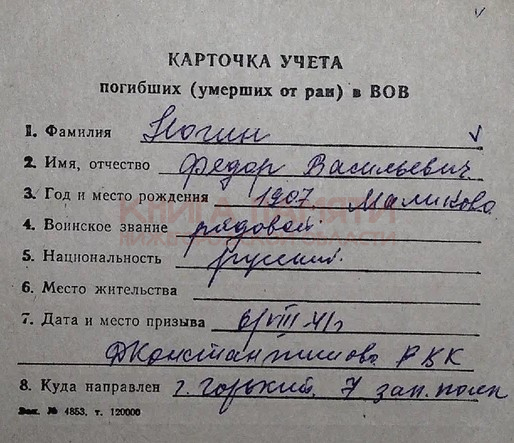 КАРТОЧКА УЧЕТА
погибших (умерших от ран) в ВОВ
1. Фамилия Ногин
2. Имя, отчество Федор Васильевич
3. Год и место рождения 1907 Маликово
КНИГА ПАМЯТИ
4. Воинское звание рядовой
НИЖЕГОРОДСКОЙ ОБЛАСТИ
5. Национальность русский
6. Место жительства
7. Дата и место призыва 6/VIII 41г
ДКонстантинова РВК
8. Куда направлен г. Горький, 7 зап. полк
Зак. № 4853, т. 120000